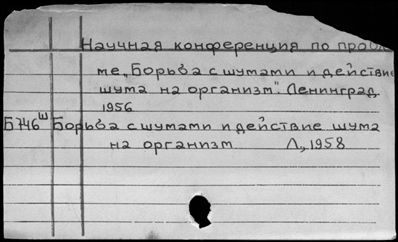 Научная конференция по пробле
ме „Борьба с шумами и действие
шума на организм". Ленинград,
1956
Б746ш Борьба с шумами и действие шума
на организм Л., 1958